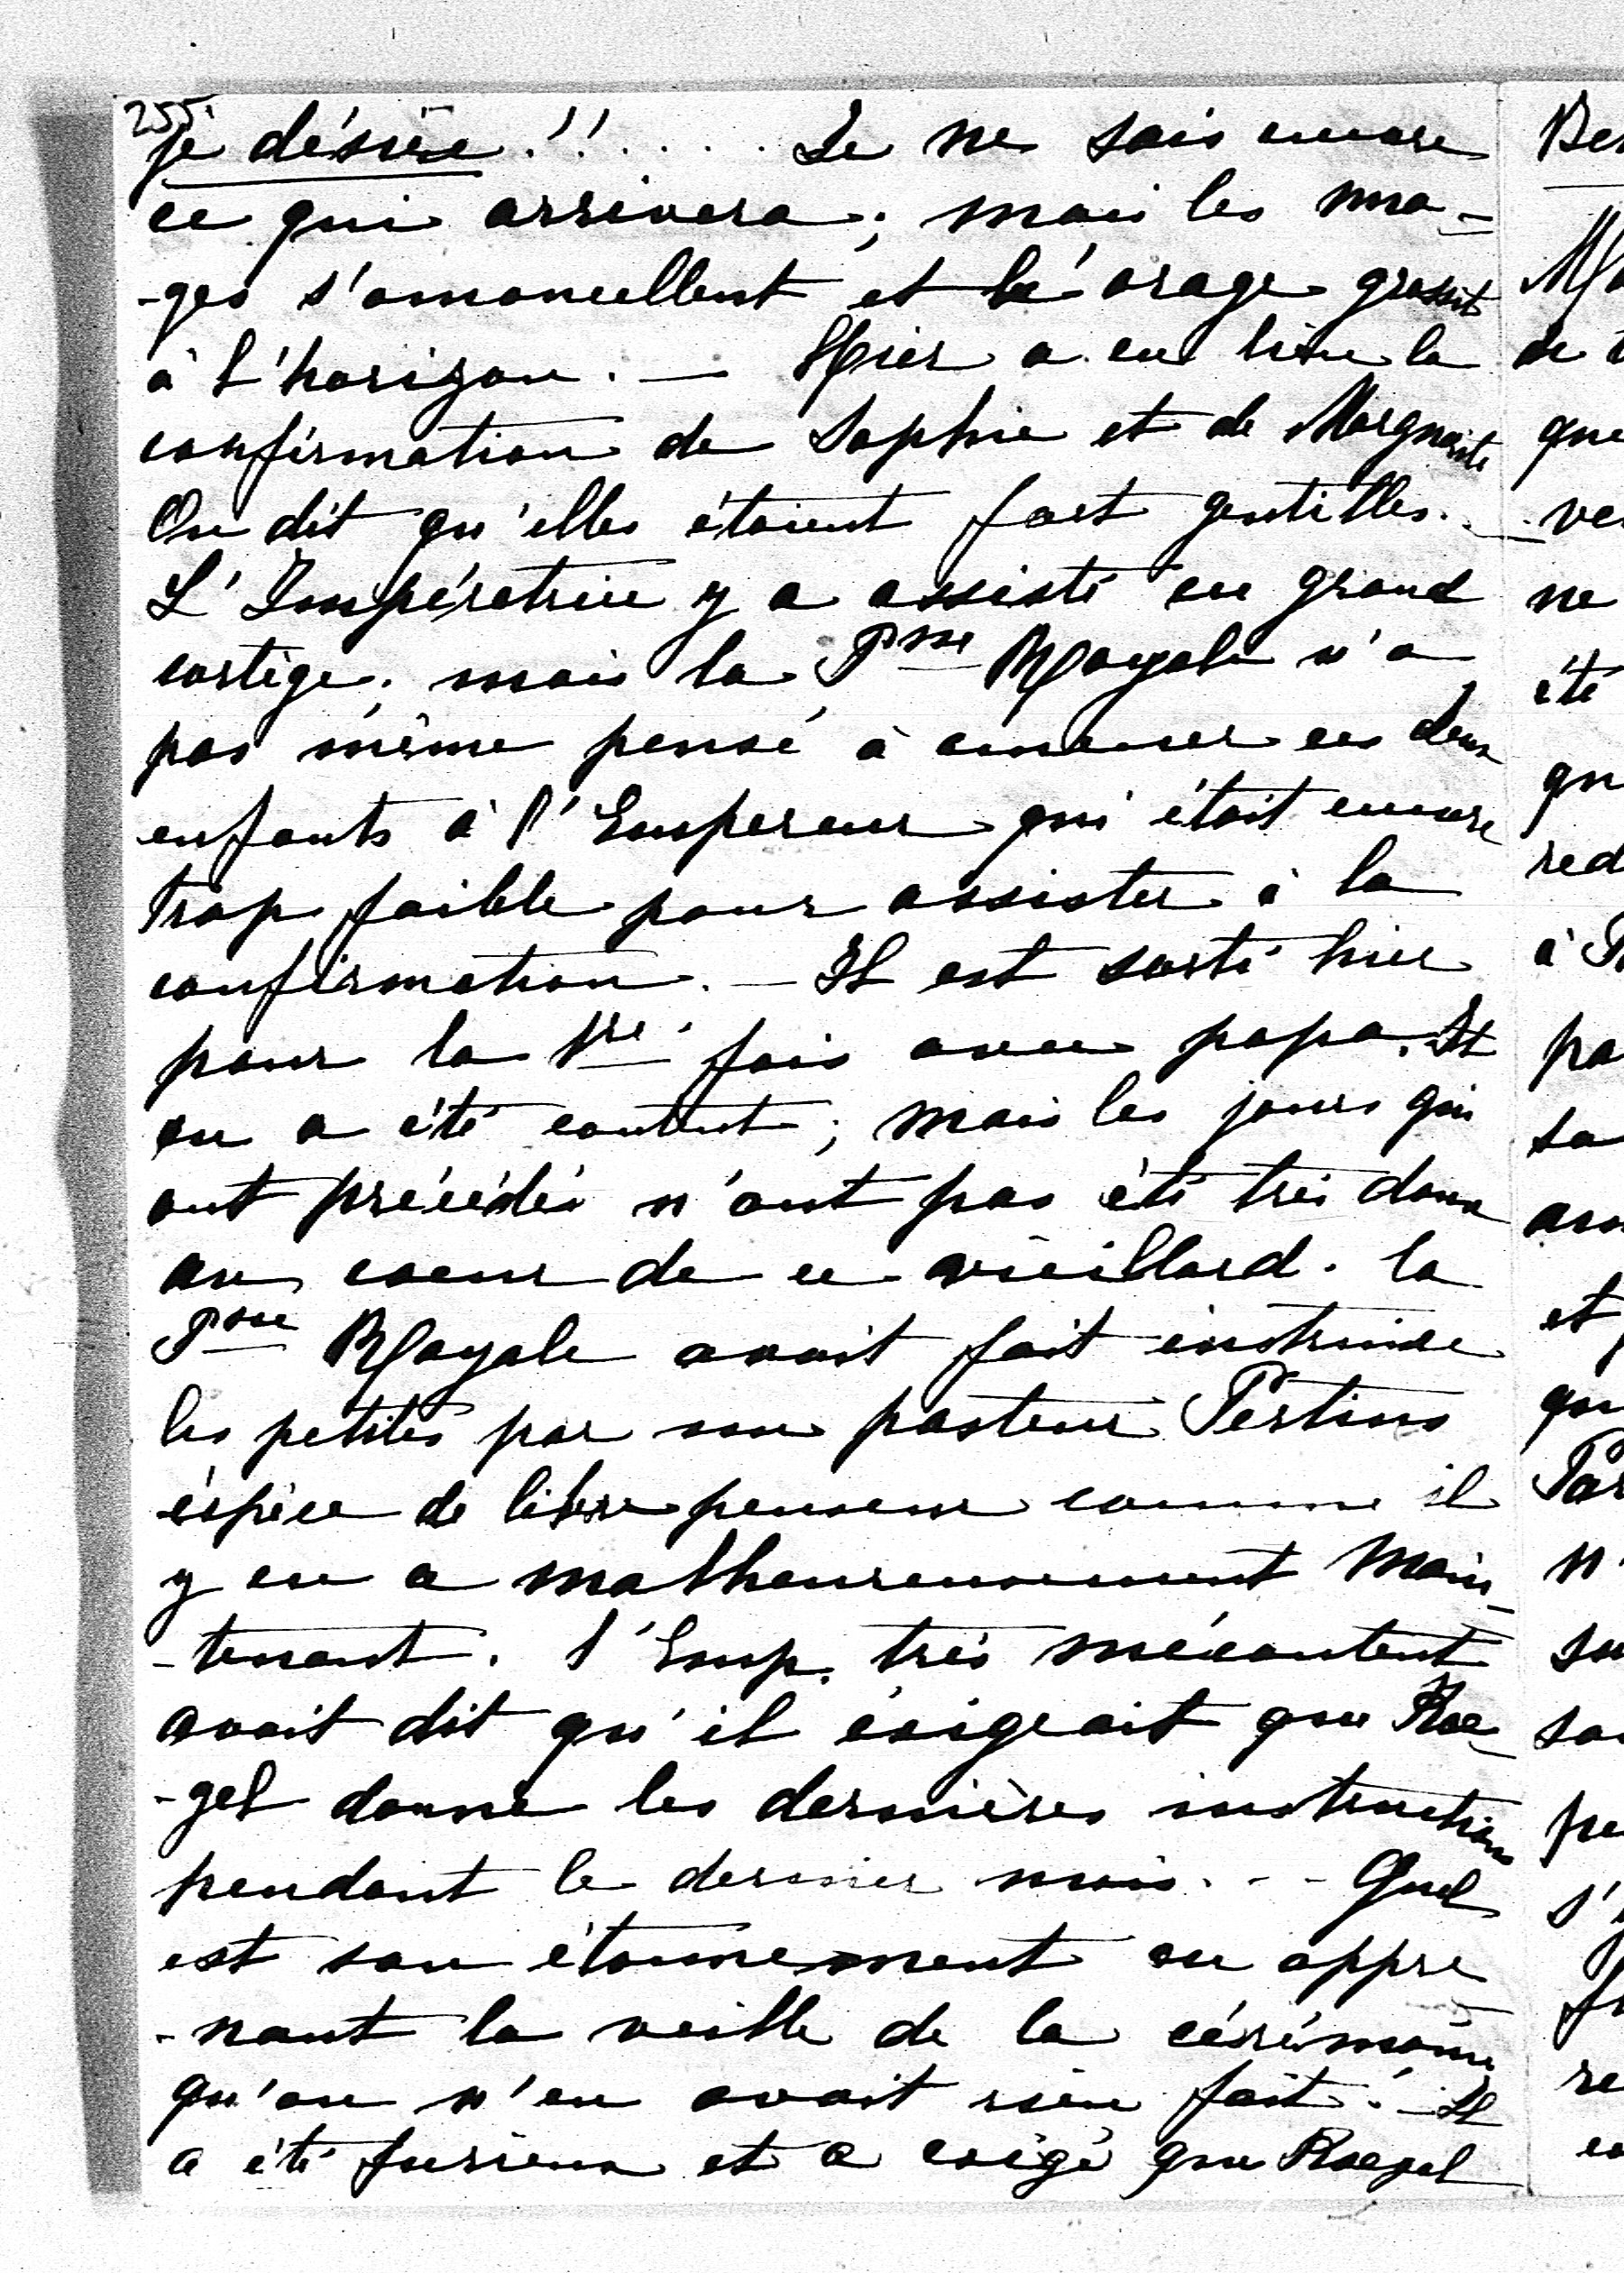 255.
je désire!!..... Je ne sais encore
ce qui arrivera; mais les nua-
-ges s'amoncellent et l'orage grossit
à l'horizon. — Hier a eu lieu la
confirmation de Sophie et de Marguerite
On dit qu'elles étaient fort gentilles. —
L'Impératrice y a assisté en grand
cortège. mais la Psse Royale n'a
pas même pensé à amener ces deux
enfants à l'Empereur qui était encore
trop faible pour assister à la
confirmation. — Il est sorti hier
pour la 1re fois avec papa. Il
en a été content; mais les jours qui
ont précédés n'ont pas été très doux
au coeur de ce vieillard. la
Psse Royale avait fait instruire
les petites par son pasteur Persius
éspèce de libre penseur comme il
y en a malheureusement main-
-tenant. l'Emp. très mécontent
avait dit qu'il éxigeait que Koe-
-gel donne les dernières instructions
pendant le dernier mois. - - Quel
est son étonnement en appre
-nant la veille de la cérémonie
qu'on n'en avait rien fait! — Il
a été furieux et a exigé que Koegel
Me
de
que
ve
ne
été
qu
red
à
pa
sa
et
n'
so
s'
re